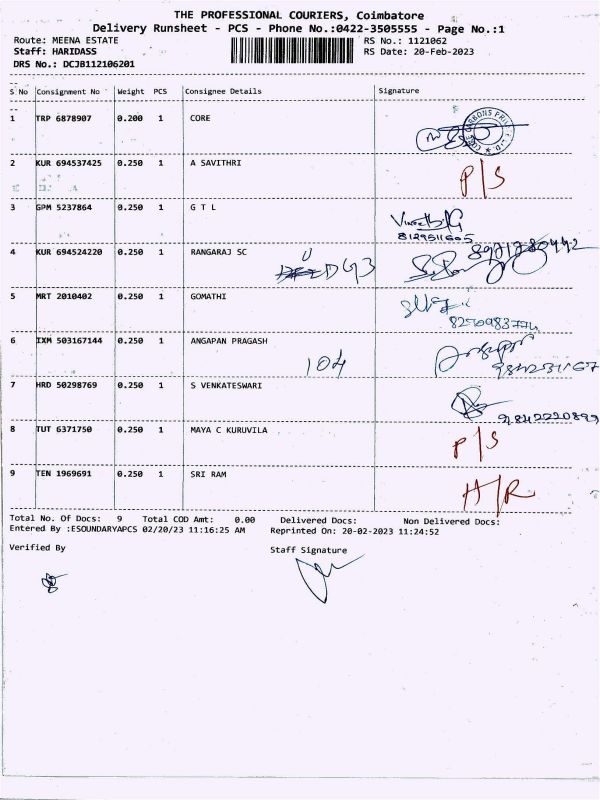 THE PROFESSIONAL COURIERS, Coimbatore
Delivery Runsheet - PCS - Phone No.:0422-3505555 - Page No.:1
Route: MEENA ESTATE
Staff: HARIDASS
DRS No.: DCJB112106201
RS No.: 1121062
RS Date: 20-Feb-2023
S No Consignment No Weight PCS Consignee Details Signature
1 TRP 6878907 0.200 1 CORE
2 KUR 694537425 0.250 1 A SAVITHRI P/S
3 GPM 5237864 0.250 1 G T L
8129511605
4 KUR 694524220 0.250 1 RANGARAJ SC
5 MRT 2010402 0.250 1 GOMATHI
6 IXM 503167144 0.250 1 ANGAPAN PRAGASH
104
7 HRD 50298769 0.250 1 S VENKATESWARI
9842220899
8 TUT 6371750 0.250 1 MAYA C KURUVILA P/S
9 TEN 1969691 0.250 1 SRI RAM H/R
Total No. Of Docs: 9 Total COD Amt: 0.00 Delivered Docs: Non Delivered Docs:
Entered By :ESOUNDARYAPCS 02/20/23 11:16:25 AM Reprinted On: 20-02-2023 11:24:52
Verified By Staff Signature